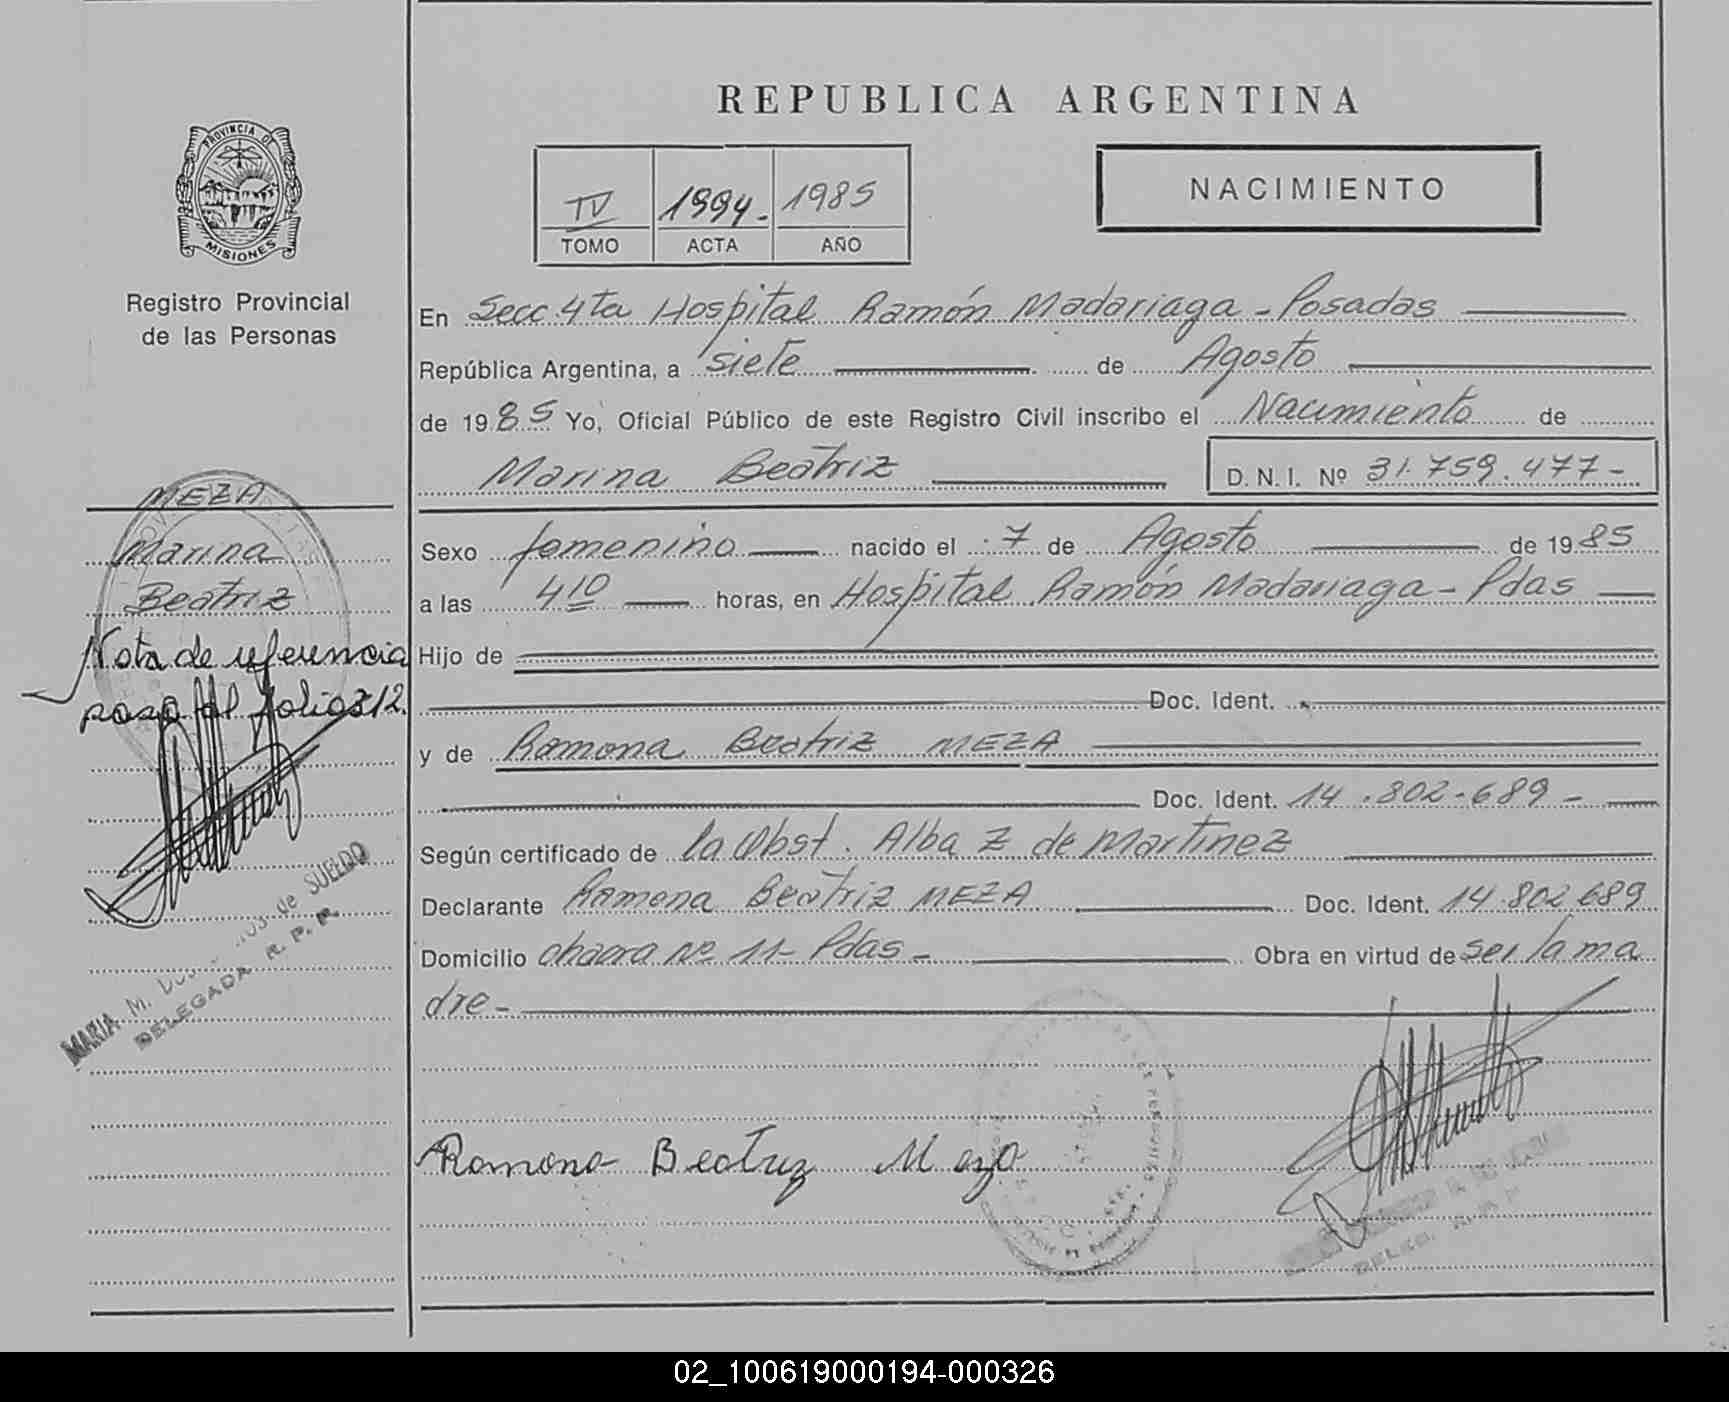 REPUBLICA ARGENTINA
PROVINCIA DE
MISIONES
Registro Provincial
de las Personas
IV 1994.- 1985
TOMO ACTA AÑO
NACIMIENTO
En Secc 4ta Hospital Ramón Madariaga - Posadas
República Argentina, a siete de Agosto
de 1985 Yo, Oficial Público de este Registro Civil inscribo el Nacimiento de
Marina Beatriz D. N. I. Nº 31.759.477-
MEZA
Marina
Beatriz
Nota de referencia
pasa al folio 312.
MARIA M. de SUELDO
DELEGADA R. P. P.
Sexo femenino nacido el 7 de Agosto de 1985
a las 4 10 horas, en Hospital Ramón Madariaga - Pdas
Hijo de
Doc. Ident.
y de Ramona Beatriz MEZA
Doc. Ident. 14.802.689-
Según certificado de la Obst. Alba Z de Martinez
Declarante Ramona Beatriz MEZA Doc. Ident. 14.802.689
Domicilio chacra Nº 11- Pdas - Obra en virtud de ser la ma
dre -
Ramona Beatriz Meza
02_100619000194-000326